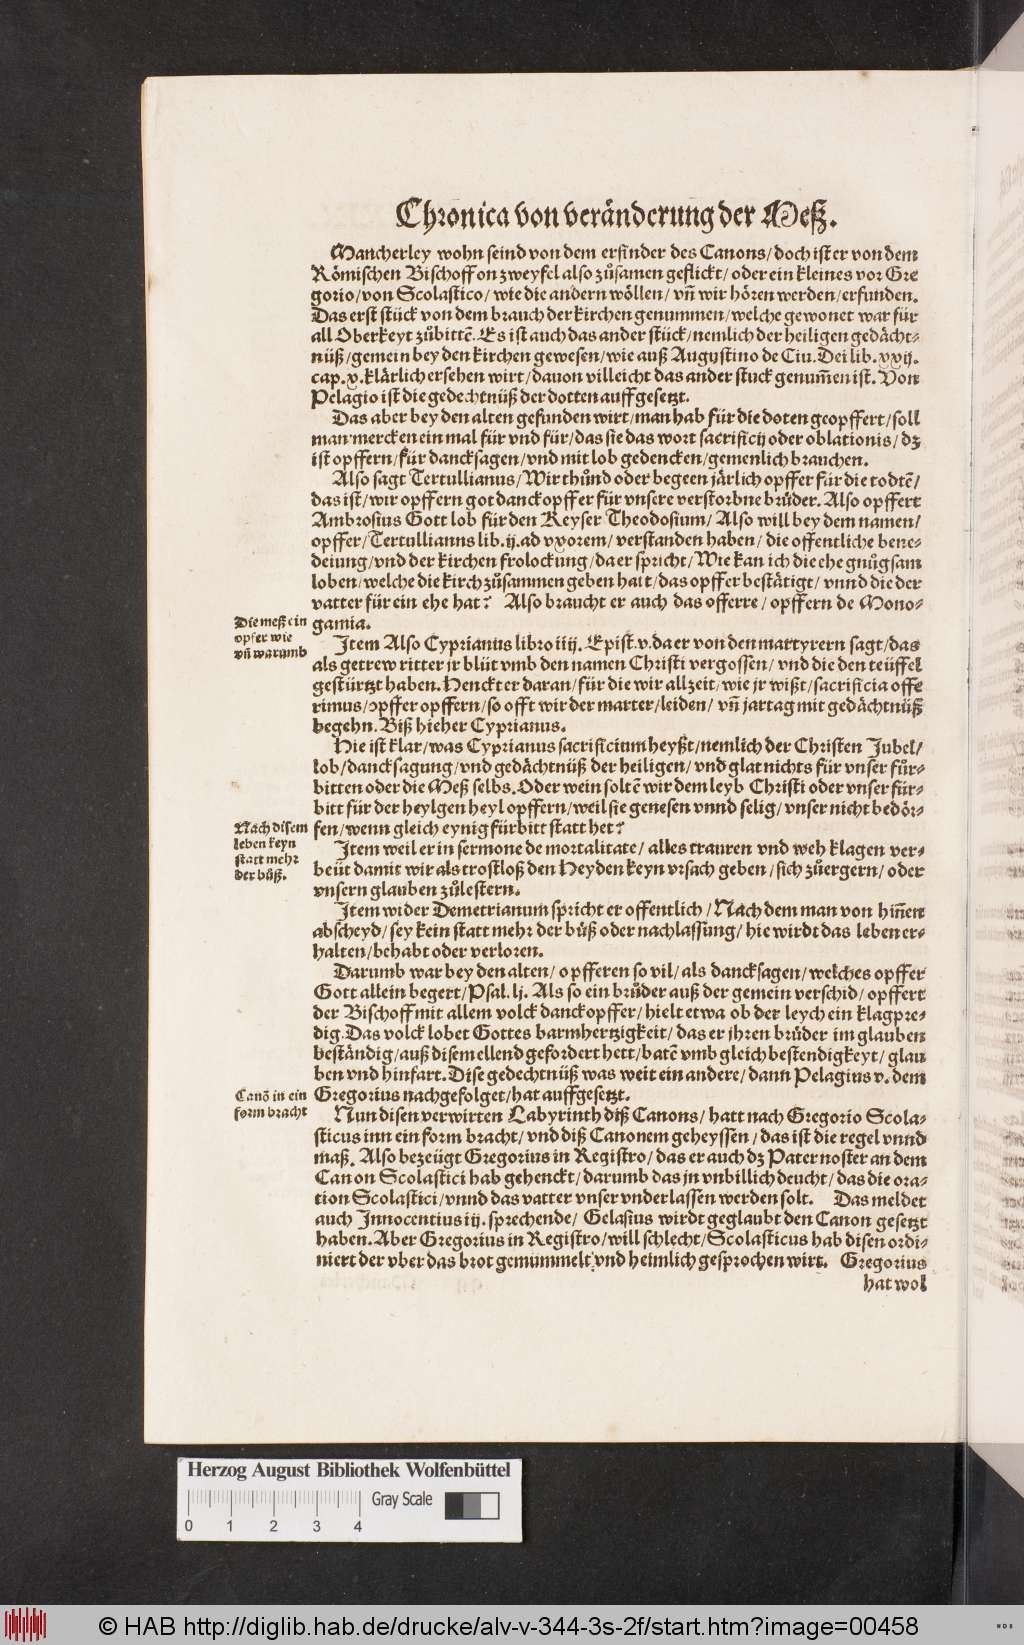 Chronica von veränderung der Meß.
Mancherley wohn seind von dem erfinder des Canons/ doch ist er von dem
Römischen Bischoff on zweyfel also zůsamen geflickt/ oder ein kleines vor Gre
gorio/ von Scolastico/ wie die andern wöllen/ vñ wir hören werden/ erfunden.
Das erst stück von dem brauch der kirchen genummen/ welche gewonet war für
all Oberkeyt zůbittẽ. Es ist auch das ander stück/ nemlich der heiligen gedächt-
nüß/ gemein bey den kirchen gewesen/ wie auß Augustino de Ciu. Dei lib. xxij.
cap. x. klärlich ersehen wirt/ dauon villeicht das ander stuck genum̃en ist. Von
Pelagio ist die gedechtnüß der dotten auffgesetzt.
Das aber bey den alten gefunden wirt/ man hab für die doten geopffert/ soll
man mercken ein mal für vnd für/ das sie das wort sacrificij oder oblationis/ dz
ist opffern/ für dancksagen/ vnd mit lob gedencken/ gemenlich brauchen.
Also sagt Tertullianus/ Wir thůnd oder begeen järlich opffer für die todtẽ/
das ist/ wir opffern got danckopffer für vnsere verstorbne brůder. Also opffert
Ambrosius Gott lob für den Keyser Theodosium/ Also will bey dem namen/
opffer/ Tertullianns lib. ij. ad vxorem/ verstanden haben/ die offentliche bene-
deiung/ vnd der kirchen frolockung/ da er spricht/ Wie kan ich die ehe gnůgsam
loben/ welche die kirch zůsammen geben hat/ das opffer bestätigt/ vnnd die der
vatter für ein ehe hat? Also braucht er auch das offerre/ opffern de Mono-
gamia.
Die meß ein
opfer wie
vñ warumb
Item Also Cyprianus libro iiij. Epist. v. da er von den martyrern sagt/ das
als getrew ritter jr blůt vmb den namen Christi vergossen/ vnd die den teüffel
gestürtzt haben. Henckt er daran/ für die wir allzeit/ wie jr wißt/ sacrificia offe
rimus/ opffer opffern/ so offt wir der marter/ leiden/ vñ jartag mit gedächtnüß
begehn. Biß hieher Cyprianus.
Hie ist klar/ was Cyprianus sacrificium heyßt/ nemlich der Christen Jubel/
lob/ dancksagung/ vnd gedächtnüß der heiligen/ vnd glat nichts für vnser für-
bitten oder die Meß selbs. Oder wein soltẽ wir dem leyb Christi oder vnser für-
bitt für der heylgen heyl opffern/ weil sie genesen vnnd selig/ vnser nicht bedör-
fen/ wenn gleich eynig fürbitt statt het?
Nach disem
leben keyn
statt mehr
der bůß.
Item weil er in sermone de mortalitate/ alles trauren vnd weh klagen ver-
beüt damit wir als trostloß den Heyden keyn vrsach geben/ sich zůergern/ oder
vnsern glauben zůlestern.
Item wider Demetrianum spricht er offentlich/ Nach dem man von hiñen
abscheyd/ sey kein statt mehr der bůß oder nachlassung/ hie wirdt das leben er-
halten/ behabt oder verloren.
Darumb war bey den alten/ opfferen so vil/ als dancksagen/ welches opffer
Gott allein begert/ Psal. lj. Als so ein brůder auß der gemein verschid/ opffert
der Bischoff mit allem volck danckopffer/ hielt etwa ob der leych ein klagpre-
dig. Das volck lobet Gottes barmhertzigkeit/ das er jhren brůder im glauben
beständig/ auß disem ellend gefordert hett/ batẽ vmb gleich bestendigkeyt/ glau
ben vnd hinfart. Dise gedechtnüß was weit ein andere/ dann Pelagius v. dem
Gregorius nachgefolget/ hat auffgesetzt.
Canõ in ein
form bracht
Nun disen verwirten Labyrinth diß Canons/ hatt nach Gregorio Scola-
sticus inn ein form bracht/ vnd diß Canonem geheyssen/ das ist die regel vnnd
maß. Also bezeügt Gregorius in Registro/ das er auch dz Pater noster an dem
Canon Scolastici hab gehenckt/ darumb das jn vnbillich deucht/ das die ora-
tion Scolastici/ vnnd das vatter vnser vnderlassen werden solt. Das meldet
auch Innocentius iij. sprechende/ Gelasius wirdt geglaubt den Canon gesetzt
haben. Aber Gregorius in Registro/ will schlecht/ Scolasticus hab disen ordi-
niert der vber das brot gemümmelt vnd heimlich gesprochen wirt. Gregorius
hat wol
Herzog August Bibliothek Wolfenbüttel
Gray Scale
0 1 2 3 4
© HAB http://diglib.hab.de/drucke/alv-v-344-3s-2f/start.htm?image=00458